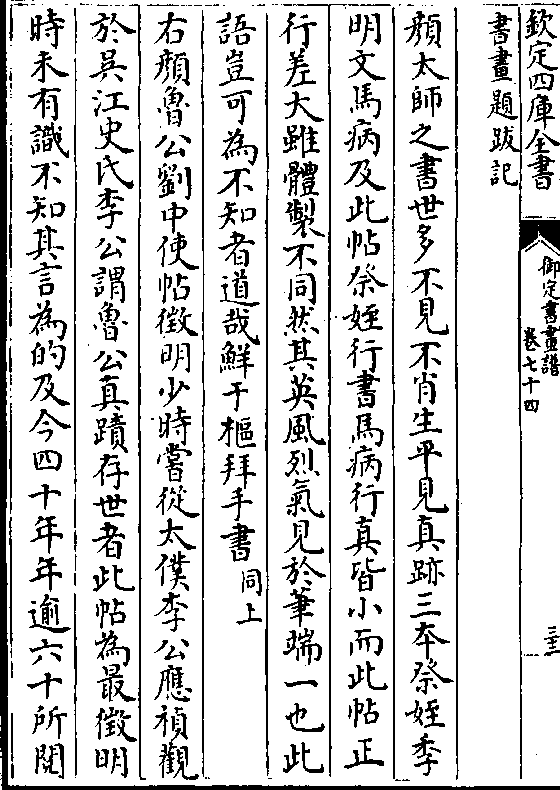 欽定四庫全書
御定書畫譜
卷七十四
書畫題跋記
顔太師之書世多不見不肖生平見真跡三本祭姪季
明文馬病及此帖祭姪行書馬病行真皆小而此帖正
行差大雖體製不同然其英風烈氣見於筆端一也此
語豈可為不知者道哉鮮于樞拜手書同上
右顔魯公劉中使帖徵明少時嘗從太僕李公應禎觀
於吳江史氏李公謂魯公真蹟存世者此帖為最徵明
時未有識不知其言為的及今四十年年逾六十所閱